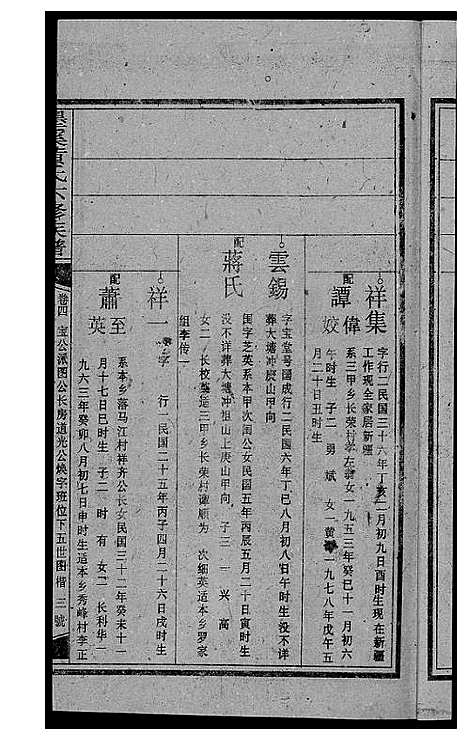 祥集
字行二民国三十六年丁亥二月初九日酉时生现在新疆
工作现全家居新疆
配
譚偉姣
系三甲乡长荣村李左彝女一九五三年癸巳十一月初六
午时生 子二 勇 斌 女一 黄 一九七八年戊午五
月二十日丑时生
雲錫
字宝堂号国成行二民国六年丁巳八月初八日午时生没不详
葬大塘冲庚山甲向
配
蔣氏
国字芝英系本甲次国公女民国五年丙辰五月二十日寅时生
没不详葬大塘冲祖山上庚山甲向 子三 一 兴 高
女二 长校 适三甲乡长荣村谭顺为 次细英适本乡罗家
组李传一
祥一
字 行一民国二十五年丙子四月二十六日戌时生
配
蕭至英
系本乡落马江村祥齐公长女民国三十二年癸未十一
月十七日巳时生 子二 时 有 女二 长利华一
九六三年癸卯八月初七日申时生适本乡秀峰村李正
黄氏六修族譜
卷四 宝公派图公长房道光公焕字班位下五世图楷 三號